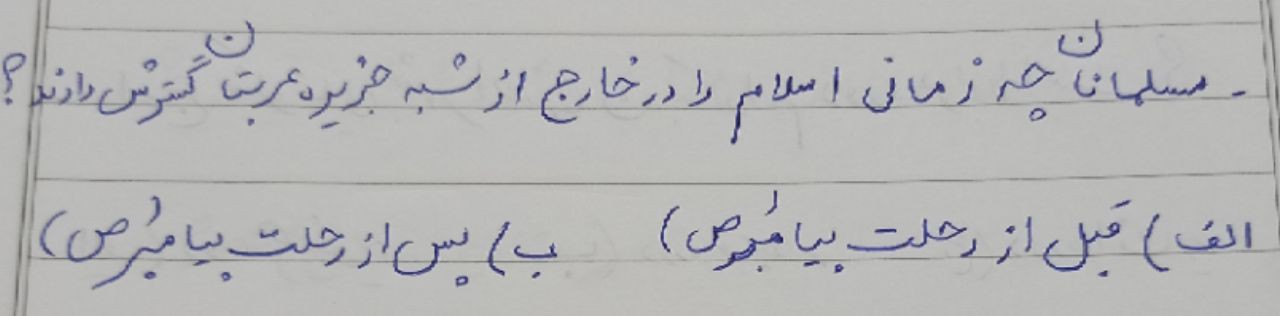 - مسلمانان چه زمانی اسلام را در خارج از شبه جزیره عربستان گسترش دادند؟
الف) قبل از رحلت پیامبر(ص) ب) پس از رحلت پیامبر(ص)